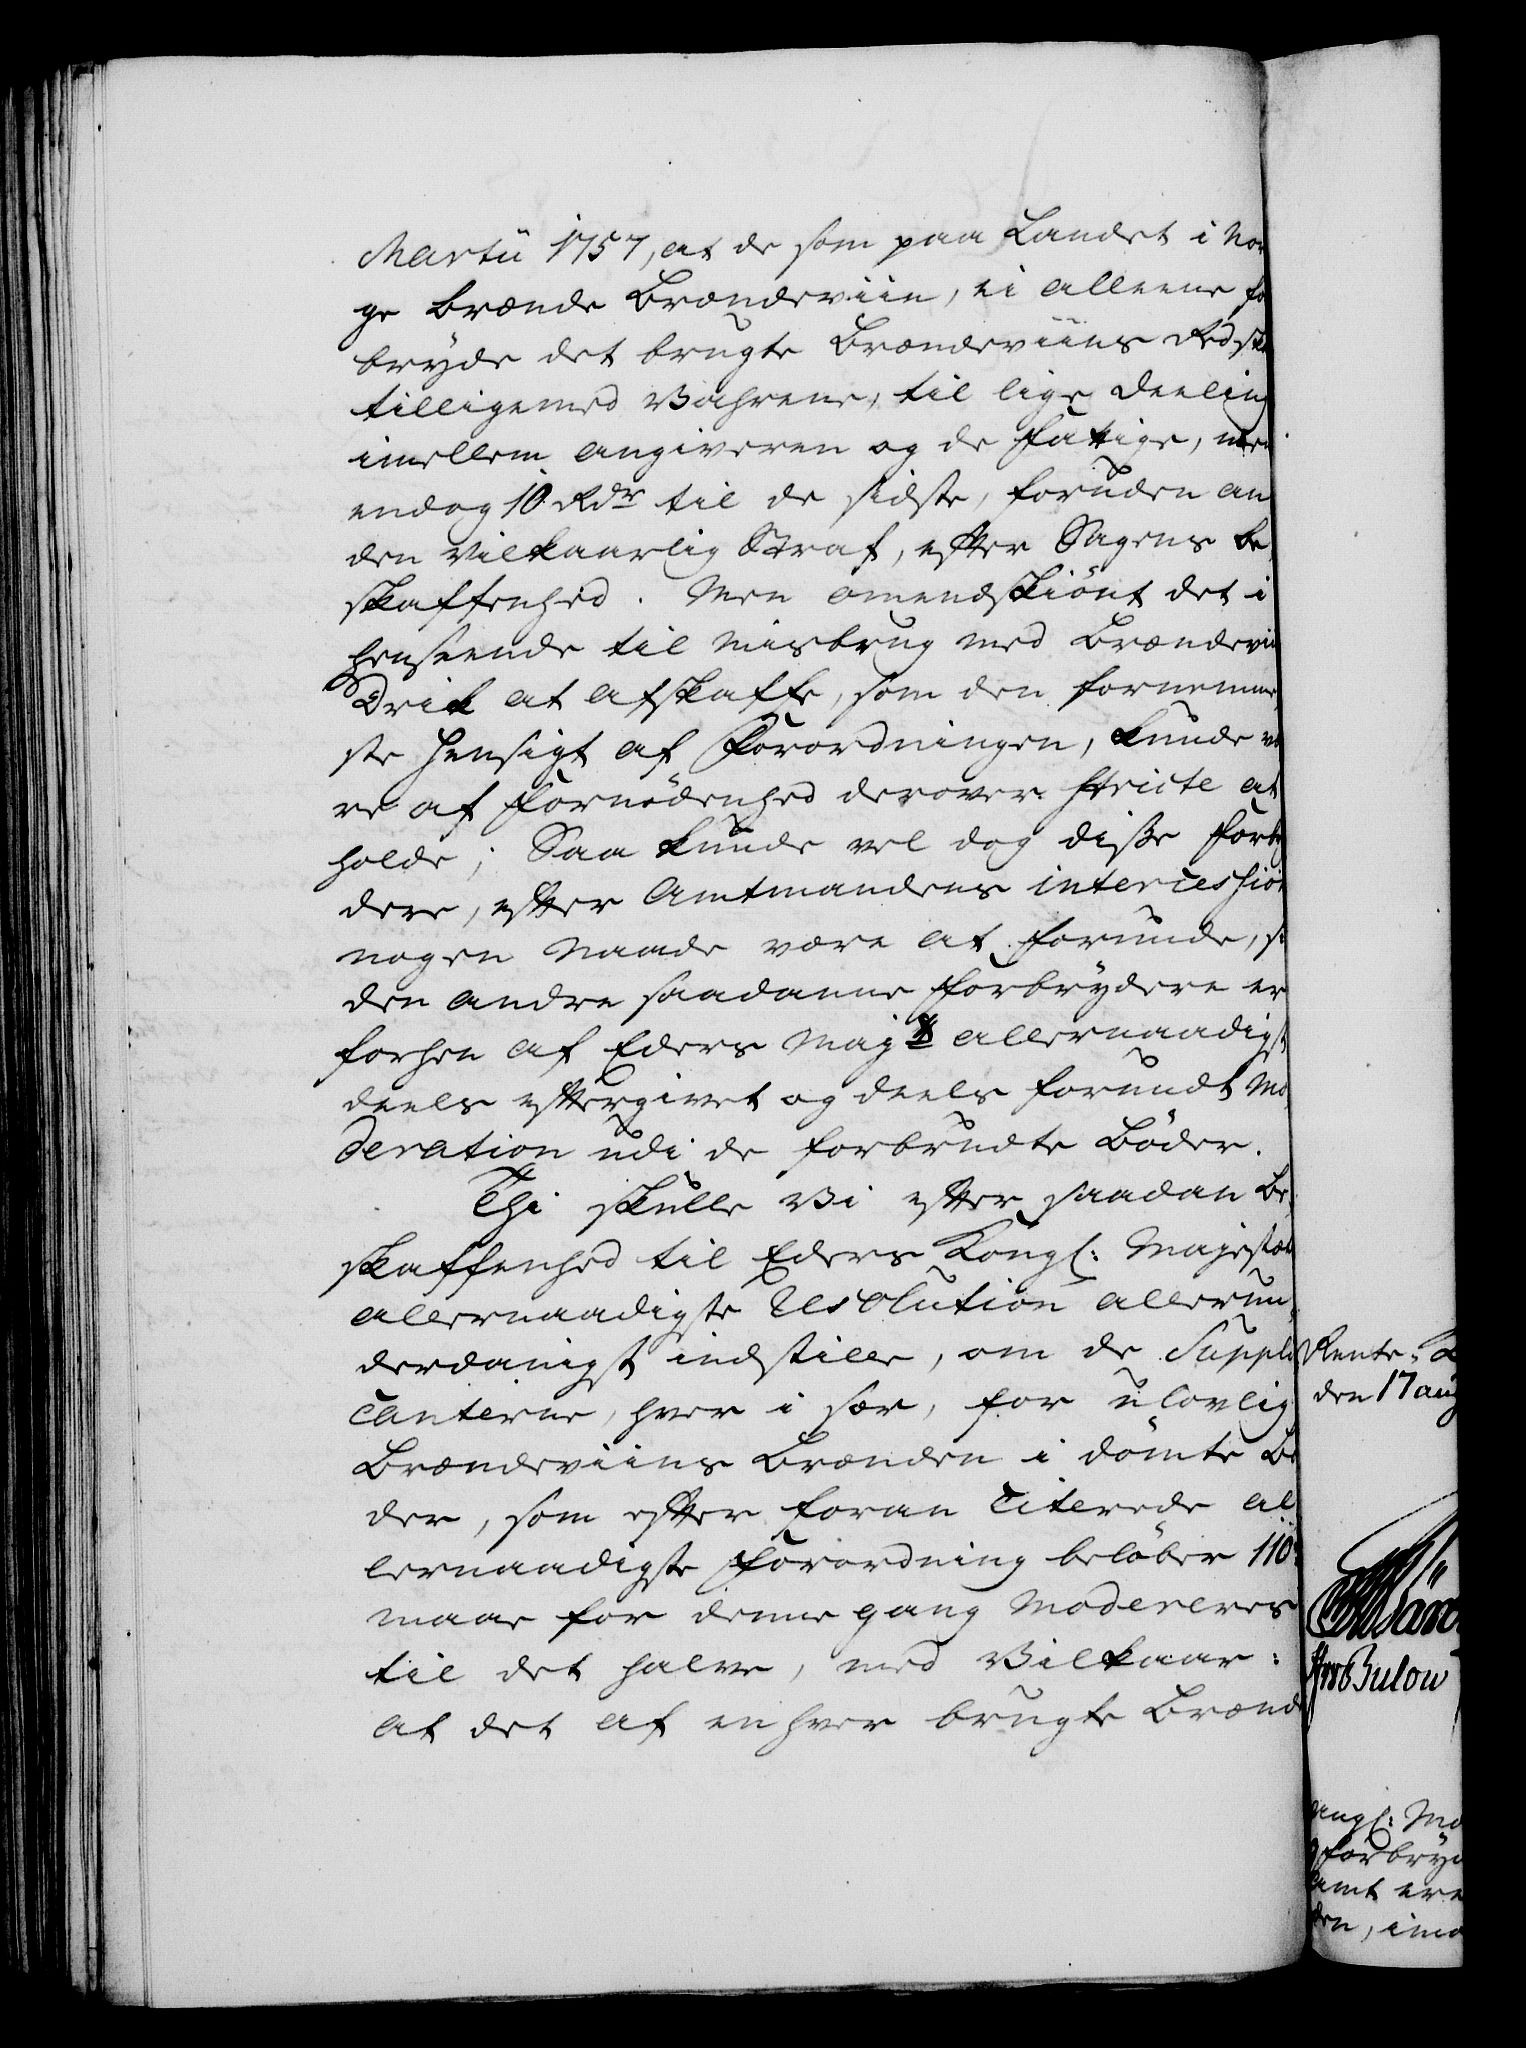 Martii 1757, at de som paa Landet i Nor
ge brænde Brændeviin, ei alleene for
bryde det brugte Brændeviins Redsk
tilligemed Vahrene, til lige Deeling
imellem Angiveren og de Fattige, men
endog 10 Rdr til de sidste, foruden an
den vilkaarlig Straf, efter Sagens be
skaffenhed. Men omendskiönt det i
henseende til Misbrug med Brændevii
Drik at afskaffe, som den fornemme
ste Hensigt af Forordningen, kunde væ
re af Fornödenhed derover stricte at
holde; Saa kunde vel dog disse Forbry
dere, efter Amtmandens intercession
nogen Naade være at forunde, si
den andre saadanne Forbrydere er
forhen af Eders Majts allernaadigst
deels eftergivet og deels forundt Mo
deration udi de forbrudte Böder.
Thi skulle Vi efter saadan be
skaffenhed til Eders Kongl: Majestæts
allernaadigste Resolution allerun
derdanigst indstille, om de Suppli
canterne, hver i sær, for ulovlig
Brændeviins Brænden i dömte Bö
der, som efter foran Citerede al
lernaadigste Forordning belöber 110
maae for denne gang Modereres
til det halve, med Vilkaar:
at det af enhver brugte Brænde
Rente-
den 17 aug
Bulow
Kongl: Ma
Forbryd
Amt ere
den, imo